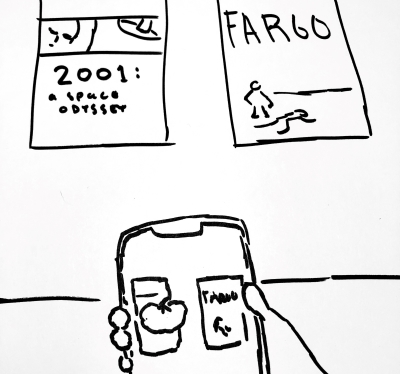 2001:
a SPACE
ODYSSEY
FARGO
FARGO